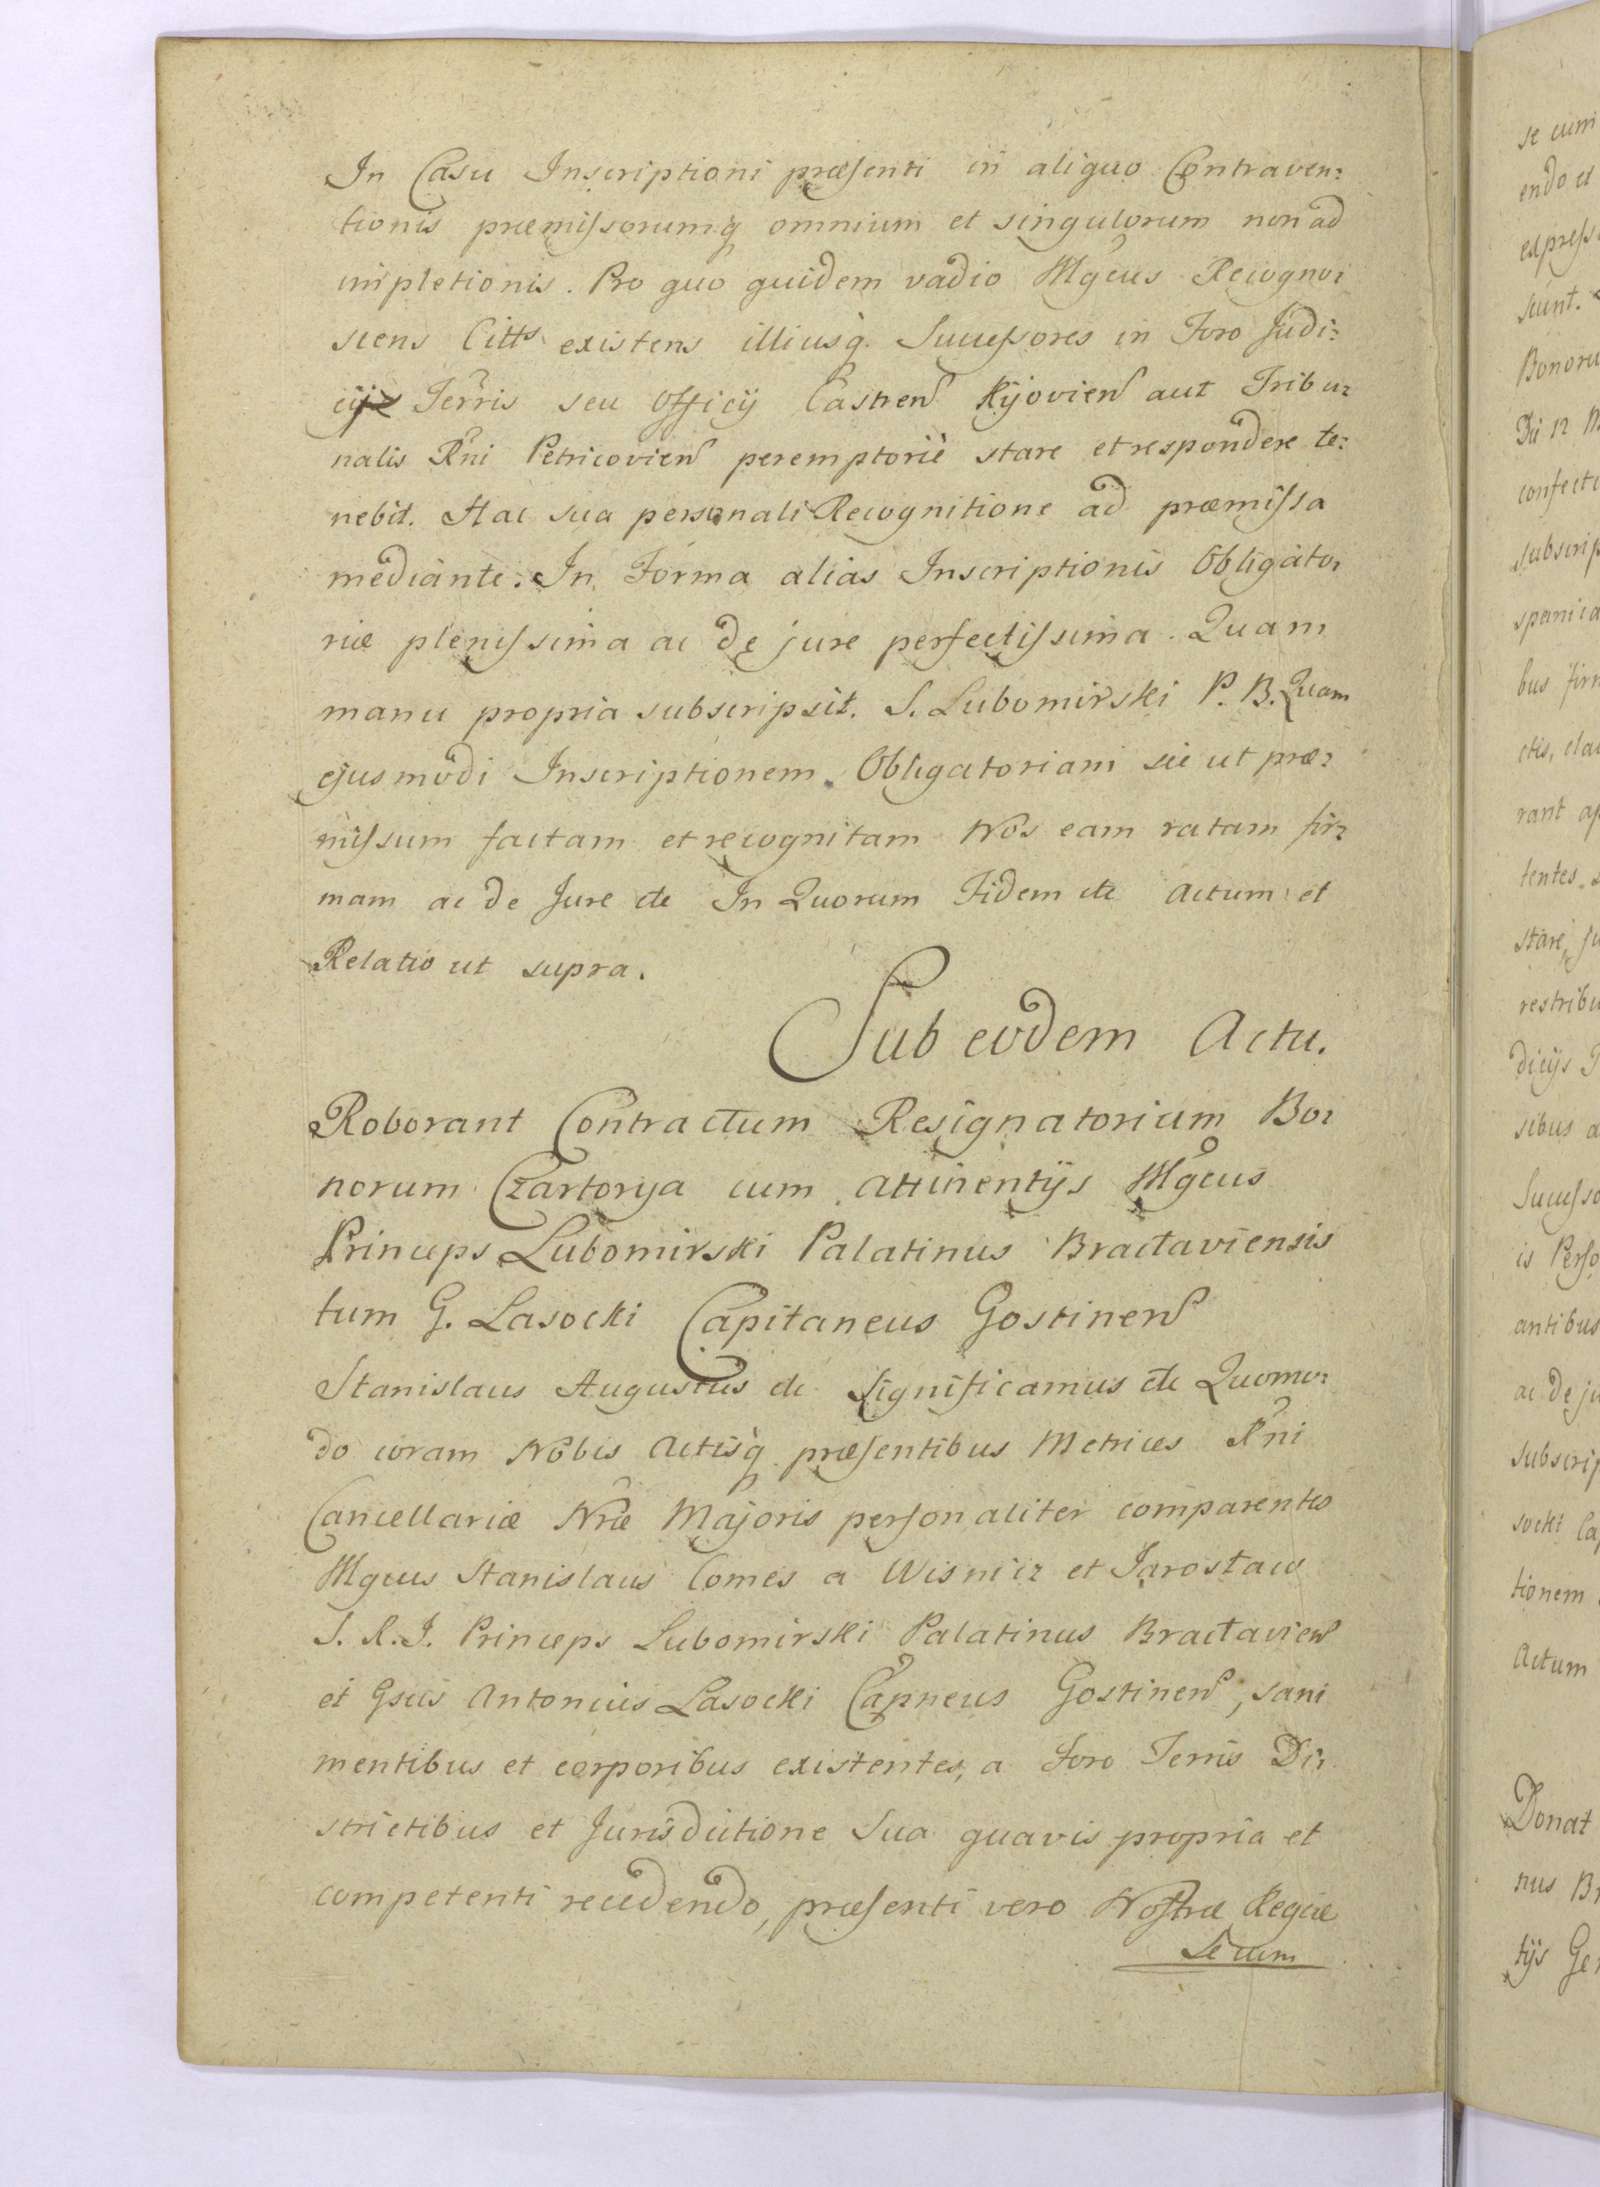 In Casu Inscriptioni præsenti in aliquo Contraven:
tionis præmissorumq omnium et singulorum non ad
impletionis. Pro quo quidem vadio Mgcus Recogno:
scens Citts existens illiusq. Successores in Foro Judi:
cij Terris seu Officij Castren Kijovien aut Tribu:
nalis Rni Petricovien peremptoriè stare et respondere te:
nebit. Hac sua personali Recognitione ad præmissa
mediante. In Forma alias Inscriptionis Obligato:
riæ plenissima ac de jure perfectissima. Quam
manu propria subscripsit. S. Lubomirski P. B. Quam
ejusmodi Inscriptionem Obligatoriam sic ut præ:
missum factam et recognitam Nos eam ratam fir:
mam ac de Jure etc In Quorum Fidem etc Actum et
Relatio ut supra.
Sub eodem Actu.
Roborant Contractum Resignatorium Bo:
norum Czartorya cum Attinentijs Mgcus
Princeps Lubomirski Palatinus Bractaviensis
tum G. Lasocki Capitaneus Gostinen
Stanislaus Augustus etc Significamus etc Quomo:
do coram Nobis Actisq præsentibus Metrices Rni
Cancellariæ Nræ Majoris personaliter comparentes
Mgcus Stanislaus Comes a Wisnicz et Jarosław
S. R. I. Princeps Lubomirski Palatinus Bractavien
et Gsus Antonius Lasocki Capneus Gostinen, sani
mentibus et corporibus existentes, a Foro Terris Di:
strictibus et Jurisdictione Sua quavis propria et
competenti recedendo, præsenti vero Nostræ Regiæ
Se cum
se cum
endo et
sunt.
Bonoru
Die 12 M
rant ap
tentes
stare
dicijs
sibus
is Perso
antibus
ac de ju
subscrip
socki Ca
tionem
Actum
Donat
nus Br
tijs Ge